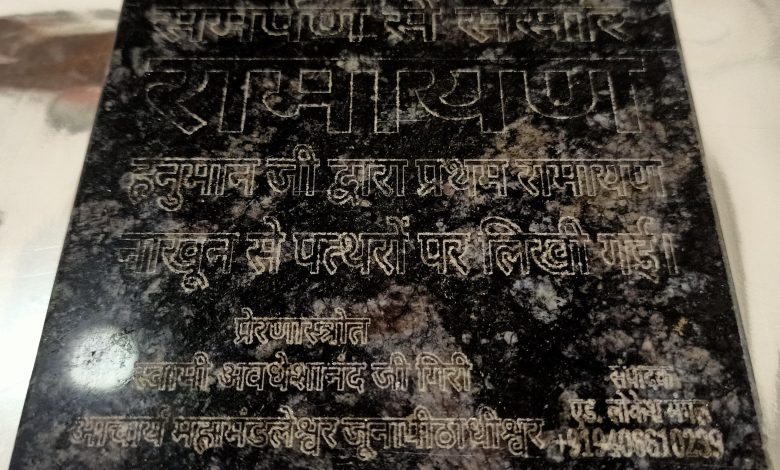 समर्पण से संस्कार
रामायण
हनुमान जी द्वारा प्रथम रामायण
नाखून से पत्थरों पर लिखी गई।
प्रेरणास्त्रोत
स्वामी अवधेशानंद जी गिरी
आचार्य महामंडलेश्वर जूनापीठाधीश्वर
संपादक
एड. लोकेश मंगल
+919406610239